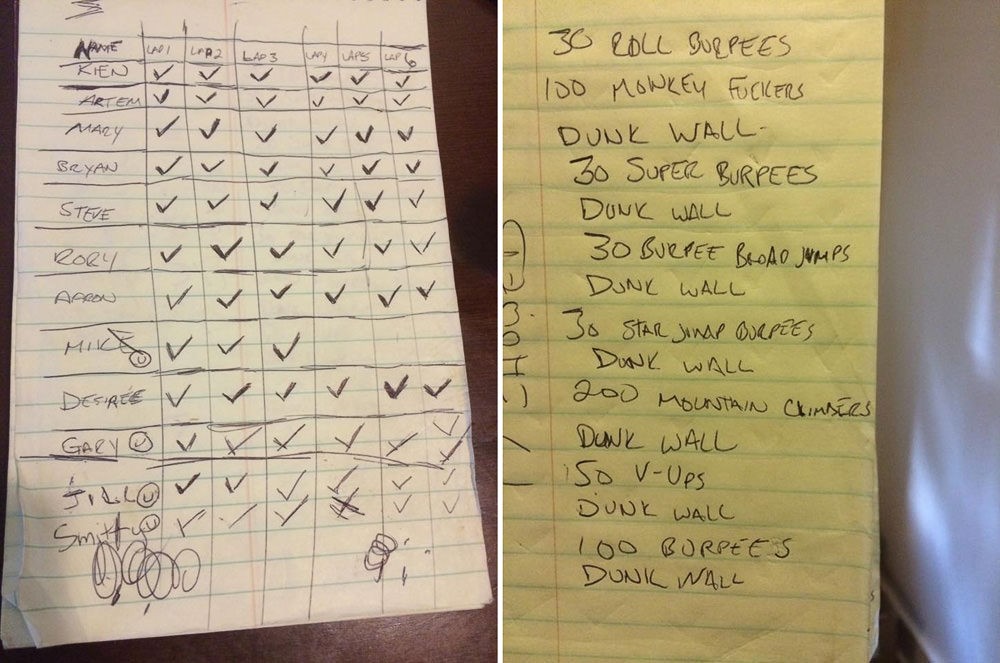 NAME LAP 1 LAP 2 LAP 3 LAP 4 LAP 5 LAP 6
KIEN ✓ ✓ ✓ ✓ ✓ ✓
ARTEM ✓ ✓ ✓ ✓ ✓ ✓
MARY ✓ ✓ ✓ ✓ ✓ ✓
BRYAN ✓ ✓ ✓ ✓ ✓ ✓
STEVE ✓ ✓ ✓ ✓ ✓ ✓
RORY ✓ ✓ ✓ ✓ ✓ ✓
AARON ✓ ✓ ✓ ✓ ✓ ✓
MIKE U ✓ ✓ ✓
DESIREÉ ✓ ✓ ✓ ✓ ✓ ✓
GARY U ✓ ✓ ✓ ✓ ✓ ✓
JILL U ✓ ✓ ✓ ✓ ✓ ✓
Smitty U ✓ ✓ ✓ ✓ ✓
30 ROLL BURPEES
100 MONKEY FUCKERS
DUNK WALL
30 SUPER BURPEES
DUNK WALL
30 BURPEE BROAD JUMPS
DUNK WALL
30 STAR JUMP BURPEES
DUNK WALL
200 MOUNTAIN CLIMBERS
DUNK WALL
150 V-UPS
DUNK WALL
100 BURPEES
DUNK WALL